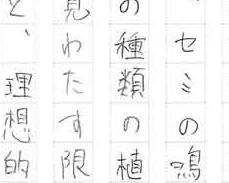 、セミの鳴
の種類の植
見わたす限
と、理想的